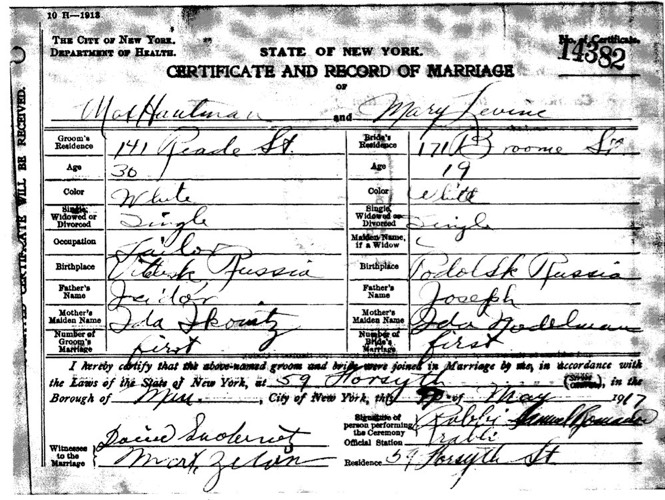 10 H—1913
THE CITY OF NEW YORK.
DEPARTMENT OF HEALTH.
STATE OF NEW YORK.
No. of Certificate.
14382
CERTIFICATE AND RECORD OF MARRIAGE
OF
Max Hautman and Mary Levine
Groom's Residence 141 Reade St. Bride's Residence 171 Broome St.
Age 30 Age 19
Color White Color White
Single, Widowed or Divorced Single Single, Widowed or Divorced Single
Occupation Tailor Maiden Name, if a Widow
Birthplace Vitebsk Russia Birthplace Podolsk Russia
Father's Name Father's Name Joseph
Mother's Maiden Name Ida Mother's Maiden Name Ida Nodelman
Number of Groom's Marriage first Number of Bride's Marriage first
I hereby certify that the above-named groom and bride were joined in Marriage by me, in accordance with
the Laws of the State of New York, at 59 Forsyth, in the
Borough of Man., City of New York, this of May 1917
Signature of person performing the Ceremony Rabbi Samuel
Official Station rabbi
Witnesses to the Marriage
Residence 59 Forsyth St.
CERTIFICATE WILL BE RECEIVED.